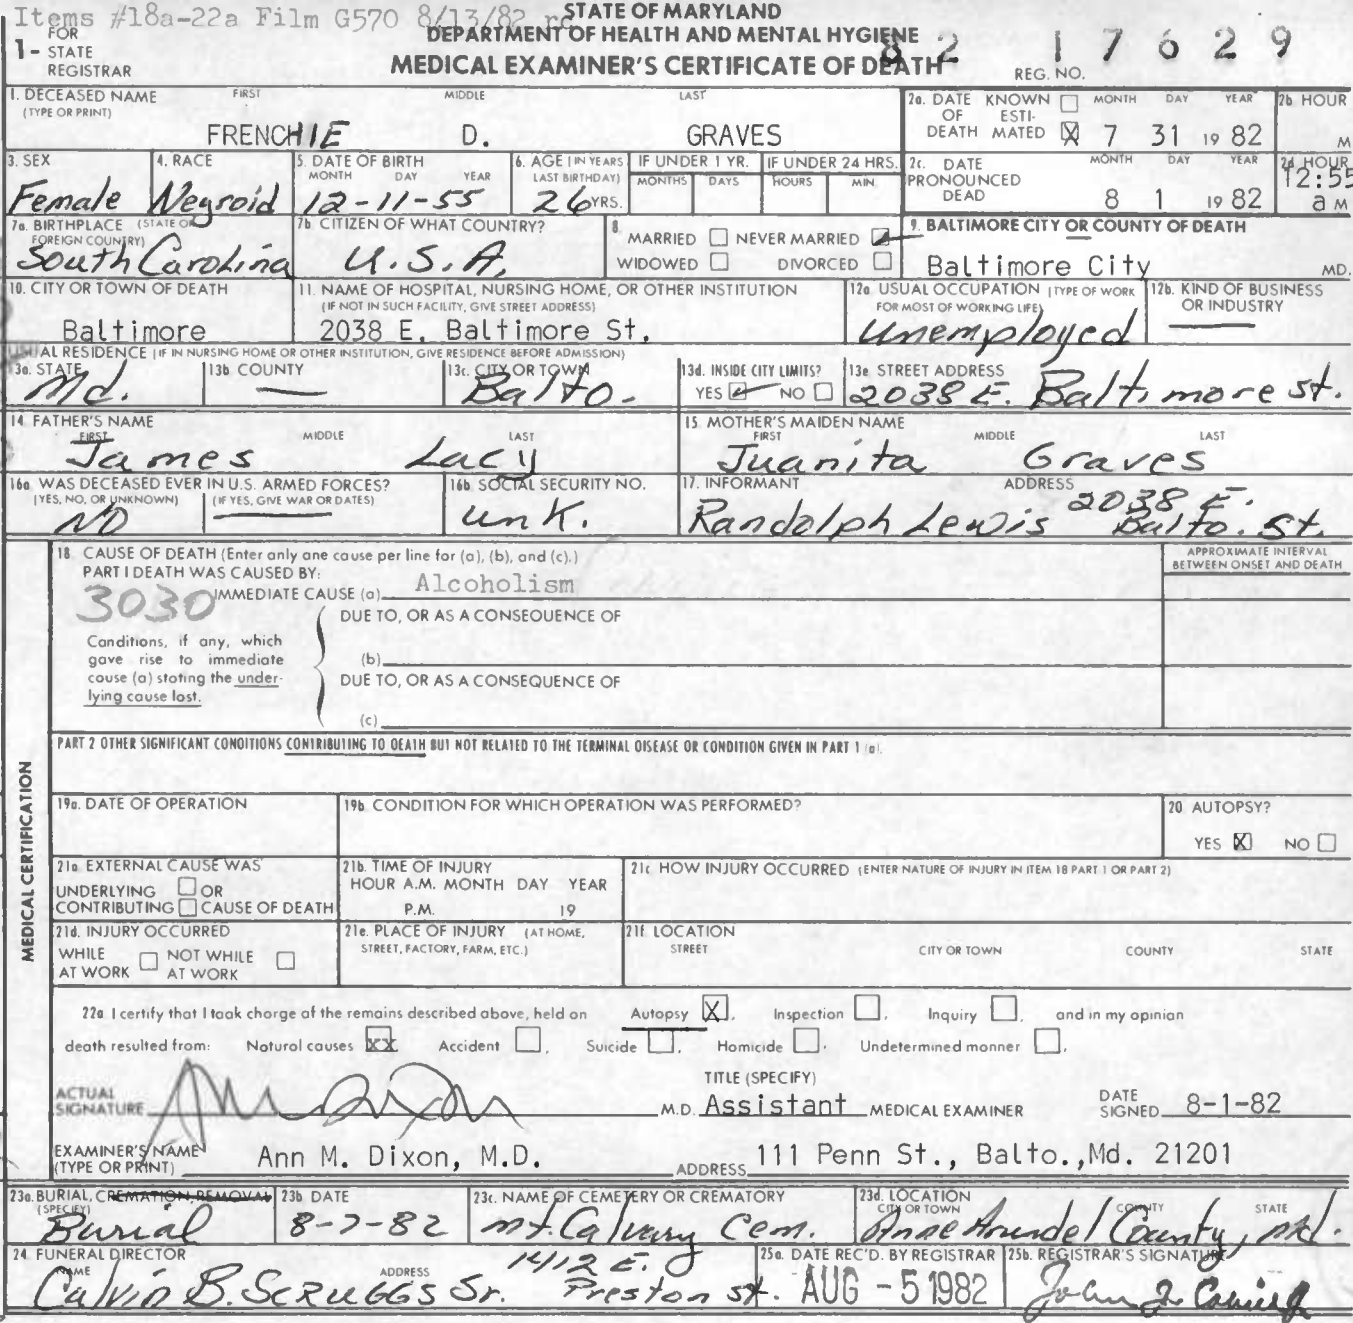 Items #18a-22a Film G570 8/13/82 rc
STATE OF MARYLAND
DEPARTMENT OF HEALTH AND MENTAL HYGIENE
MEDICAL EXAMINER'S CERTIFICATE OF DEATH
FOR
1- STATE
REGISTRAR
82 17629
REG. NO.
1. DECEASED NAME FIRST MIDDLE LAST
(TYPE OR PRINT)
FRENCHIE D. GRAVES
2a. DATE KNOWN ☐ MONTH DAY YEAR 2b HOUR
OF ESTI-
DEATH MATED ☒ 7 31 19 82 M
3. SEX 4. RACE 5. DATE OF BIRTH 6. AGE (IN YEARS IF UNDER 1 YR. IF UNDER 24 HRS.
MONTH DAY YEAR LAST BIRTHDAY) MONTHS DAYS HOURS MIN.
Female Negroid 12-11-55 26 YRS.
2c. DATE MONTH DAY YEAR 2d HOUR
PRONOUNCED 12:55
DEAD 8 1 19 82 a M
7a. BIRTHPLACE (STATE OR
FOREIGN COUNTRY)
South Carolina
7b CITIZEN OF WHAT COUNTRY?
U.S.A.
8. MARRIED ☐ NEVER MARRIED ☑
WIDOWED ☐ DIVORCED ☐
9. BALTIMORE CITY OR COUNTY OF DEATH
Baltimore City MD.
10. CITY OR TOWN OF DEATH
Baltimore
11. NAME OF HOSPITAL, NURSING HOME, OR OTHER INSTITUTION
(IF NOT IN SUCH FACILITY, GIVE STREET ADDRESS)
2038 E. Baltimore St.
12a. USUAL OCCUPATION (TYPE OF WORK
FOR MOST OF WORKING LIFE)
Unemployed
12b. KIND OF BUSINESS
OR INDUSTRY
USUAL RESIDENCE (IF IN NURSING HOME OR OTHER INSTITUTION, GIVE RESIDENCE BEFORE ADMISSION)
13a. STATE 13b COUNTY 13c. CITY OR TOWN 13d. INSIDE CITY LIMITS? 13e STREET ADDRESS
Md. — Balto. YES ☑ NO ☐ 2038 E. Baltimore St.
14 FATHER'S NAME
FIRST MIDDLE LAST
James Lacy
15. MOTHER'S MAIDEN NAME
FIRST MIDDLE LAST
Juanita Graves
16a WAS DECEASED EVER IN U.S. ARMED FORCES?
(YES, NO, OR UNKNOWN) (IF YES, GIVE WAR OR DATES)
NO
16b SOCIAL SECURITY NO.
unk.
17. INFORMANT ADDRESS
Randolph Lewis 2038 E.
Balto. St.
18. CAUSE OF DEATH (Enter only one cause per line for (a), (b), and (c).)
PART I DEATH WAS CAUSED BY:
APPROXIMATE INTERVAL
BETWEEN ONSET AND DEATH
3030 IMMEDIATE CAUSE (a) Alcoholism
DUE TO, OR AS A CONSEQUENCE OF
Conditions, if any, which
gave rise to immediate
cause (a) stating the under-
lying cause last.
(b)
DUE TO, OR AS A CONSEQUENCE OF
(c)
PART 2 OTHER SIGNIFICANT CONDITIONS CONTRIBUTING TO DEATH BUT NOT RELATED TO THE TERMINAL DISEASE OR CONDITION GIVEN IN PART 1 (a).
MEDICAL CERTIFICATION
19a. DATE OF OPERATION
19b CONDITION FOR WHICH OPERATION WAS PERFORMED?
20 AUTOPSY?
YES ☒ NO ☐
21a EXTERNAL CAUSE WAS
UNDERLYING ☐ OR
CONTRIBUTING ☐ CAUSE OF DEATH
21b. TIME OF INJURY
HOUR A.M. MONTH DAY YEAR
P.M. 19
21c HOW INJURY OCCURRED (ENTER NATURE OF INJURY IN ITEM 18 PART 1 OR PART 2)
21d. INJURY OCCURRED
WHILE ☐ NOT WHILE ☐
AT WORK AT WORK
21e. PLACE OF INJURY (AT HOME,
STREET, FACTORY, FARM, ETC.)
21f. LOCATION
STREET CITY OR TOWN COUNTY STATE
22a I certify that I took charge of the remains described above, held an Autopsy ☒, Inspection ☐, Inquiry ☐, and in my opinion
death resulted from: Natural causes XX Accident ☐, Suicide ☐, Homicide ☐, Undetermined manner ☐.
TITLE (SPECIFY)
ACTUAL
SIGNATURE M.D. Assistant MEDICAL EXAMINER DATE
SIGNED 8-1-82
EXAMINER'S NAME
(TYPE OR PRINT) Ann M. Dixon, M.D. ADDRESS 111 Penn St., Balto.,Md. 21201
23a. BURIAL, CREMATION, REMOVAL
(SPECIFY)
Burial
23b DATE
8-7-82
23c. NAME OF CEMETERY OR CREMATORY
Mt. Calvary Cem.
23d. LOCATION
CITY OR TOWN COUNTY STATE
Anne Arundel County, Md.
24 FUNERAL DIRECTOR
NAME ADDRESS
Calvin B. SCRUGGS Sr. 1412 E.
Preston St.
25a. DATE REC'D. BY REGISTRAR
AUG -5 1982
25b. REGISTRAR'S SIGNATURE